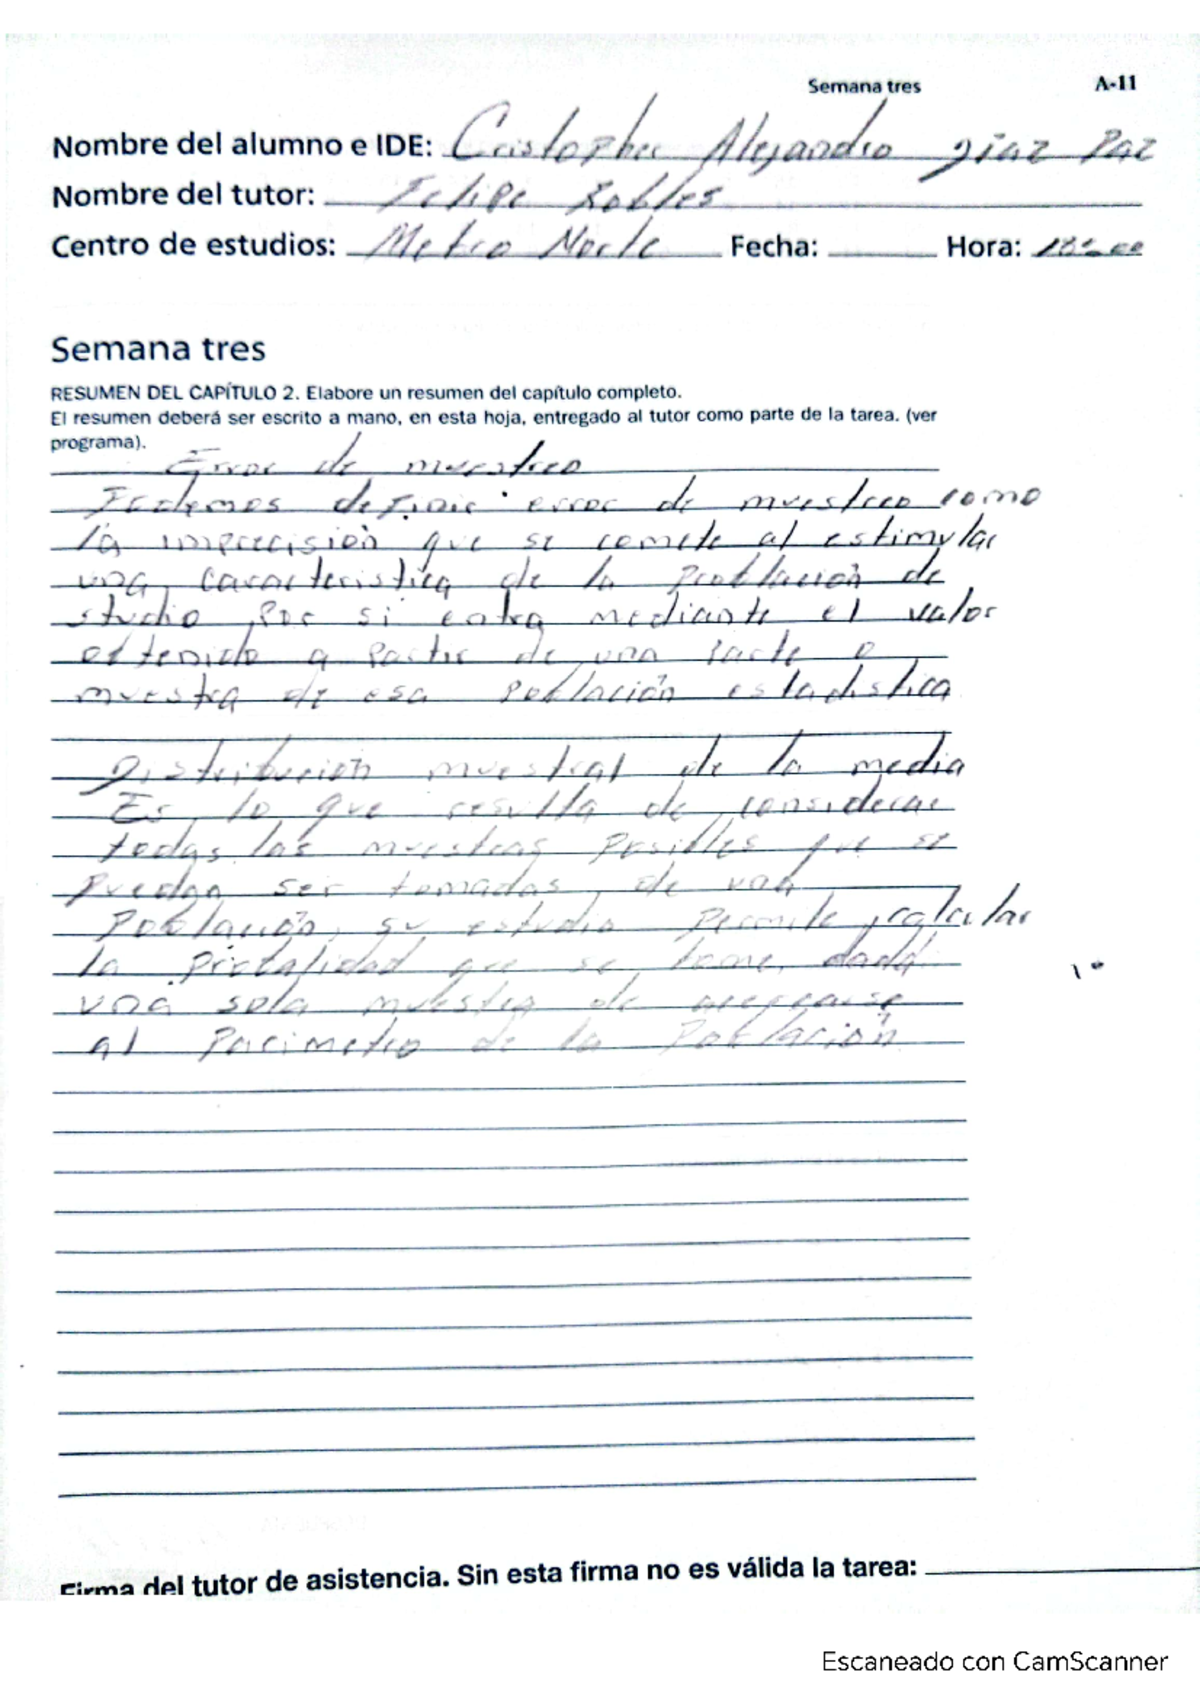 Semana tres A-11
Nombre del alumno e IDE: Cristopher Alejandro Diaz Paz
Nombre del tutor: Felipe Robles
Centro de estudios: Metro Norte Fecha: Hora: 18:00
Semana tres
RESUMEN DEL CAPÍTULO 2. Elabore un resumen del capítulo completo.
El resumen deberá ser escrito a mano, en esta hoja, entregado al tutor como parte de la tarea. (ver
programa).
Error de muestreo
Podemos definir error de muestreo como
la imprecisión que se comete al estimular
una caracteristica de la población de
studio por si entra mediante el valor
obtenido a partir de una parte o
muestra de esa población estadistica
Distribucion muestral de la media
Es lo que resulta de considerar
todas las muestras posibles que se
puedan ser tomadas, de una
Población, su estudio permite calcular
la que se tome, dada
una sola muestra de
al Parimetro de la Población
1
Firma del tutor de asistencia. Sin esta firma no es válida la tarea:
Escaneado con CamScanner